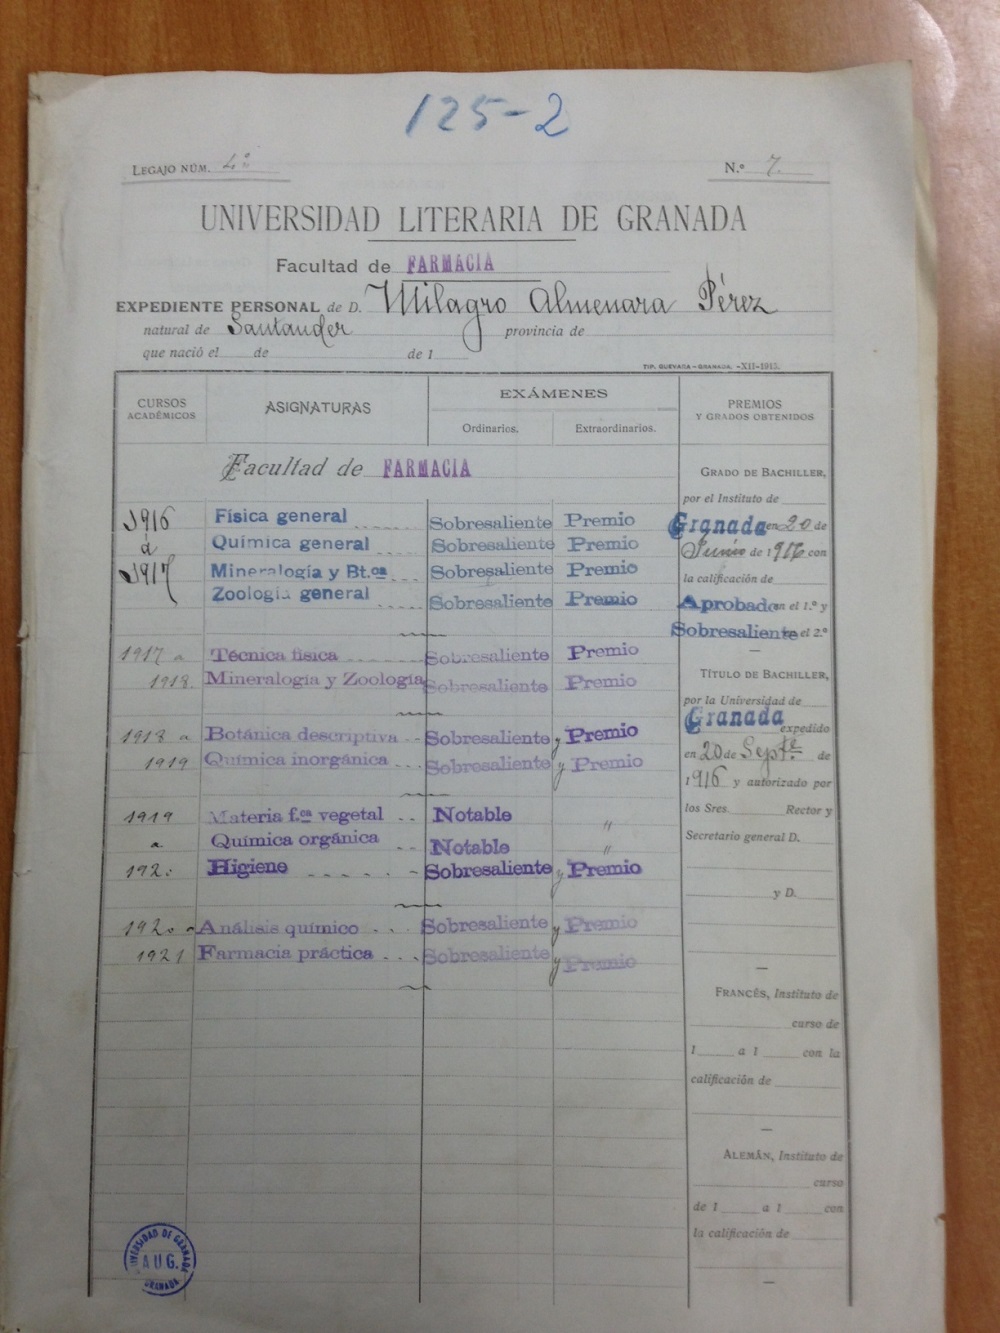 125-2
LEGAJO NÚM. 42
N.º 7
UNIVERSIDAD LITERARIA DE GRANADA
Facultad de FARMACIA
EXPEDIENTE PERSONAL de D. Milagro Almenara Pérez
natural de Santander provincia de
que nació el de de 1
TIP. GUEVARA-GRANADA. -XII-1915.
CURSOS ACADÉMICOS
ASIGNATURAS
EXÁMENES
Ordinarios. Extraordinarios.
PREMIOS
Y GRADOS OBTENIDOS
Facultad de FARMACIA
1916 Física general Sobresaliente Premio
á Química general Sobresaliente Premio
1917 Mineralogía y Bt.ca Sobresaliente Premio
Zoología general Sobresaliente Premio
1917 a Técnica física Sobresaliente Premio
1918. Mineralogía y Zoología Sobresaliente Premio
1918 a Botánica descriptiva Sobresaliente y Premio
1919 Química inorgánica Sobresaliente y Premio
1919 Materia f.ca vegetal Notable "
a. Química orgánica Notable "
192: Higiene Sobresaliente y Premio
1920 a Análisis químico Sobresaliente y Premio
1921 Farmacia práctica Sobresaliente y Premio
GRADO DE BACHILLER,
por el Instituto de
Granada en 20 de
Junio de 1916 con
la calificación de
Aprobado en el 1.º y
Sobresaliente en el 2.º
TÍTULO DE BACHILLER,
por la Universidad de
Granada expedido
en 20 de Septe. de
1916 y autorizado por
los Sres. Rector y
Secretario general D.
y D.
FRANCÉS, Instituto de
curso de
1 a 1 con la
calificación de
ALEMÁN, Instituto de
curso
de 1 a 1 con
la calificación de
UNIVERSIDAD DE GRANADA
AUG.
GRANADA